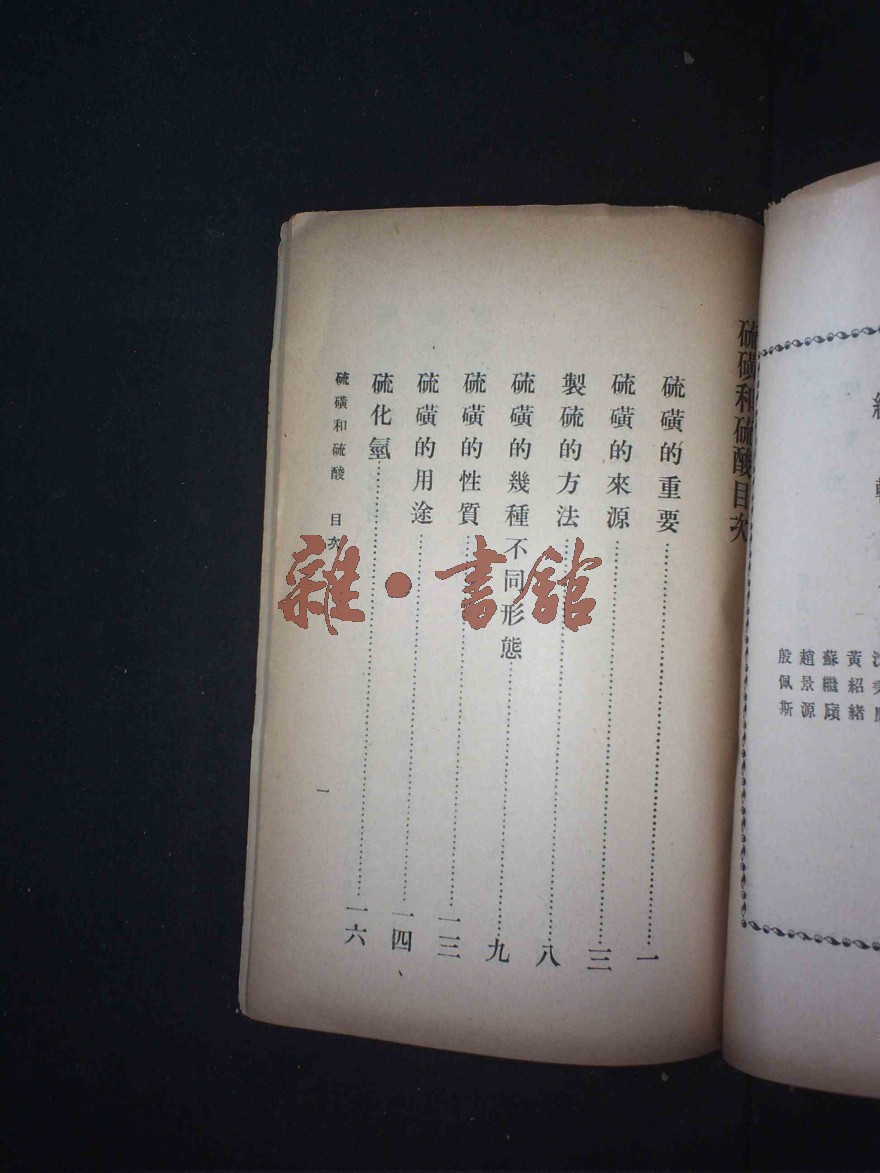 硫磺和硫酸目次
硫磺的重要……一
硫磺的來源……三
製硫的方法……八
硫磺的幾種不同形態……九
硫磺的性質……一三
硫磺的用途……一四
硫化氫……一六
硫磺和硫酸 目次
一
黃紹緒
蘇繼廎
趙景源
殷佩斯
雜·書館